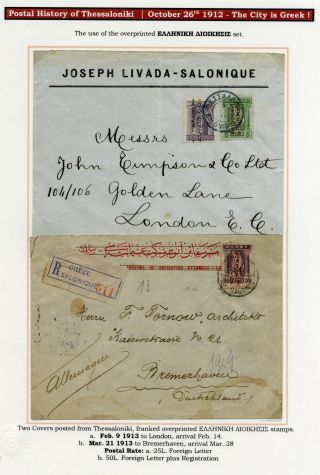 Postal History of Thessaloniki | October 26th 1912 - The City is Greek !
The use of the overprinted ΕΛΛΗΝΙΚΗ ΔΙΟΙΚΗΣΙΣ set.
JOSEPH LIVADA-SALONIQUE
Messrs
John Timpson & Co Ltd
104/106 Golden Lane
London E. C.
R
GRÈCE
SALONIQUE
511
Herrn F. Tornow, architekt
Kaiserstrasse No 21
Bremerhaven
(Deutschland)
Allemagne
Two Covers posted from Thessaloniki, franked overprinted ΕΛΛΗΝΙΚΗ ΔΙΟΙΚΗΣΙΣ stamps.
a. Feb. 9 1913 to London, arrival Feb. 14.
b. Mar. 21 1913 to Bremerhaven, arrival Mar. 28
Postal Rate: a. 25L. Foreign Letter
b. 50L. Foreign Letter plus Registration